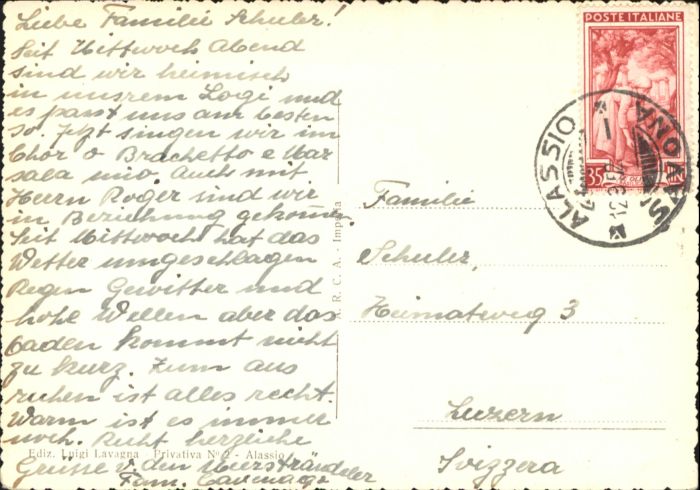 Liebe Familie Schuler!
Seit Mittwoch Abend
sind wir heimisch
in unsrem Logi und
es passt uns am besten
so. Jetzt singen wir im
Chor o Brachetto e Mar
sala mio. Auch mit
Herrn Roger sind wir
in Beziehung gekommen.
Seit Mittwoch hat das
Wetter umgeschlagen
Regen Gewitter und
hohe Wellen aber das
baden kommt nicht
zu kurz. Zum aus
ruhen ist alles recht.
Warm ist es immer
noch. Recht herzliche
Grüsse v den Meersträndler
Fam. Cavenago
Ediz. Luigi Lavagna - Privativa N° 2 - Alassio
A. R. C. A. - Imperia
POSTE ITALIANE
35
ALASSIO
SAVONA
Familie
Schuler,
Heimatweg 3
Luzern
Svizzera